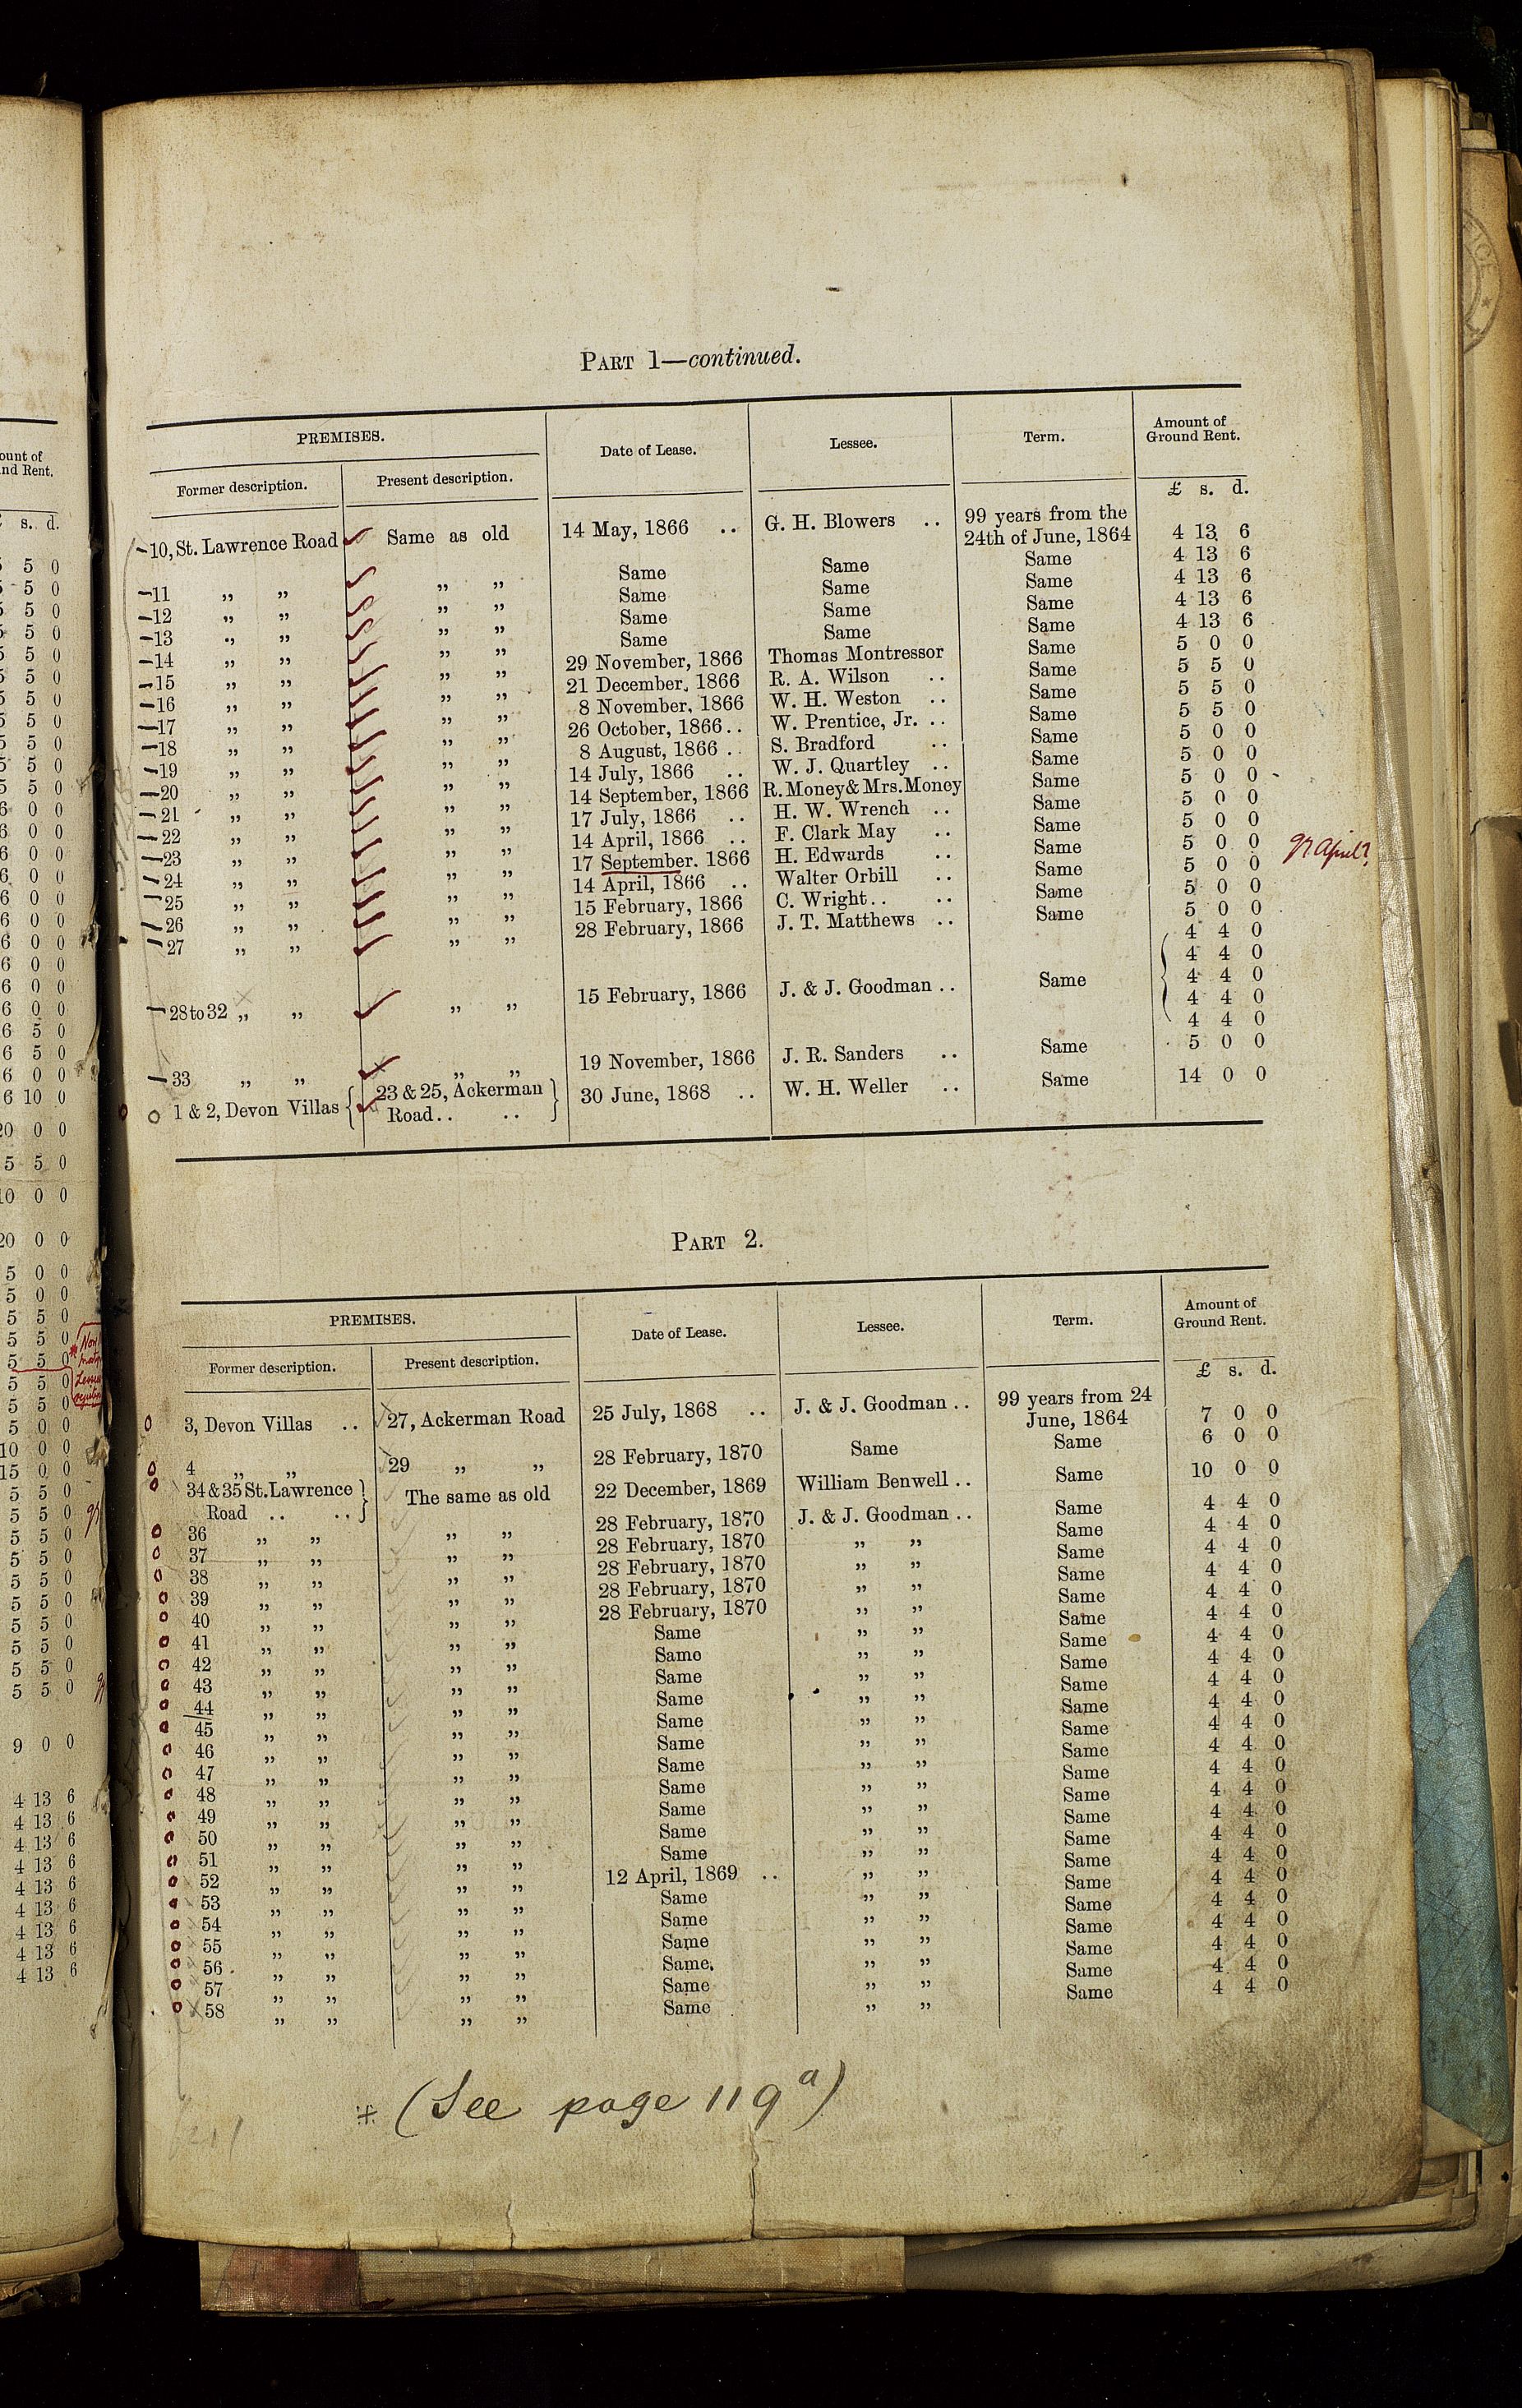 PART 1—continued.
PREMISES. Date of Lease. Lessee. Term. Amount of Ground Rent.
Former description. Present description.
£ s. d.
10, St. Lawrence Road Same as old 14 May, 1866 .. G. H. Blowers .. 99 years from the 24th of June, 1864 4 13 6
11 „ „ „ „ Same Same Same 4 13 6
12 „ „ „ „ Same Same Same 4 13 6
13 „ „ „ „ Same Same Same 4 13 6
14 „ „ „ „ Same Same Same 4 13 6
15 „ „ „ „ 29 November, 1866 Thomas Montressor Same 5 0 0
16 „ „ „ „ 21 December, 1866 R. A. Wilson .. Same 5 5 0
17 „ „ „ „ 8 November, 1866 W. H. Weston .. Same 5 5 0
18 „ „ „ „ 26 October, 1866.. W. Prentice, Jr. .. Same 5 5 0
19 „ „ „ „ 8 August, 1866 .. S. Bradford .. Same 5 0 0
20 „ „ „ „ 14 July, 1866 .. W. J. Quartley .. Same 5 0 0
21 „ „ „ „ 14 September, 1866 R. Money & Mrs. Money Same 5 0 0
22 „ „ „ „ 17 July, 1866 .. H. W. Wrench .. Same 5 0 0
23 „ „ „ „ 14 April, 1866 .. F. Clark May .. Same 5 0 0
24 „ „ „ „ 17 September. 1866 H. Edwards .. Same 5 0 0 April?
25 „ „ „ „ 14 April, 1866 .. Walter Orbill .. Same 5 0 0
26 „ „ „ „ 15 February, 1866 C. Wright.. .. Same 5 0 0
27 „ „ „ „ 28 February, 1866 J. T. Matthews .. Same 5 0 0
4 4 0
4 4 0
28 to 32 „ „ „ „ 15 February, 1866 J. & J. Goodman .. Same 4 4 0
4 4 0
4 4 0
33 „ „ „ „ 19 November, 1866 J. R. Sanders .. Same 5 0 0
1 & 2, Devon Villas 23 & 25, Ackerman Road.. .. 30 June, 1868 .. W. H. Weller .. Same 14 0 0
PART 2.
PREMISES. Date of Lease. Lessee. Term. Amount of Ground Rent.
Former description. Present description.
£ s. d.
3, Devon Villas .. 27, Ackerman Road 25 July, 1868 .. J. & J. Goodman .. 99 years from 24 June, 1864 7 0 0
4 „ „ 29 „ „ 28 February, 1870 Same Same 6 0 0
34 & 35 St. Lawrence Road .. .. The same as old 22 December, 1869 William Benwell .. Same 10 0 0
36 „ „ „ „ 28 February, 1870 J. & J. Goodman .. Same 4 4 0
37 „ „ „ „ 28 February, 1870 „ „ Same 4 4 0
38 „ „ „ „ 28 February, 1870 „ „ Same 4 4 0
39 „ „ „ „ 28 February, 1870 „ „ Same 4 4 0
40 „ „ „ „ 28 February, 1870 „ „ Same 4 4 0
41 „ „ „ „ Same „ „ Same 4 4 0
42 „ „ „ „ Same „ „ Same 4 4 0
43 „ „ „ „ Same „ „ Same 4 4 0
44 „ „ „ „ Same „ „ Same 4 4 0
45 „ „ „ „ Same „ „ Same 4 4 0
46 „ „ „ „ Same „ „ Same 4 4 0
47 „ „ „ „ Same „ „ Same 4 4 0
48 „ „ „ „ Same „ „ Same 4 4 0
49 „ „ „ „ Same „ „ Same 4 4 0
50 „ „ „ „ Same „ „ Same 4 4 0
51 „ „ „ „ Same „ „ Same 4 4 0
52 „ „ „ „ 12 April, 1869 .. „ „ Same 4 4 0
53 „ „ „ „ Same „ „ Same 4 4 0
54 „ „ „ „ Same „ „ Same 4 4 0
55 „ „ „ „ Same „ „ Same 4 4 0
56 „ „ „ „ Same. „ „ Same 4 4 0
57 „ „ „ „ Same „ „ Same 4 4 0
58 „ „ „ „ Same „ „ Same 4 4 0
* (See page 119a)